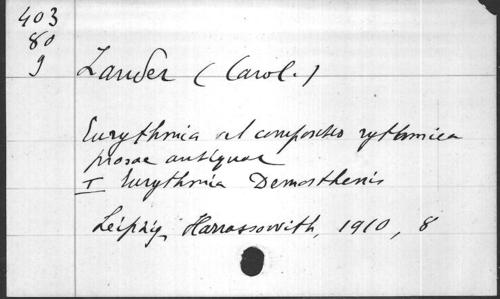 403
80
9
Zander (Carol.)
Eurythmia vel compositio rythmica
prosae antiquae
I Eurythmia Demosthenis
Leipzig, Harrassowith, 1910, 8